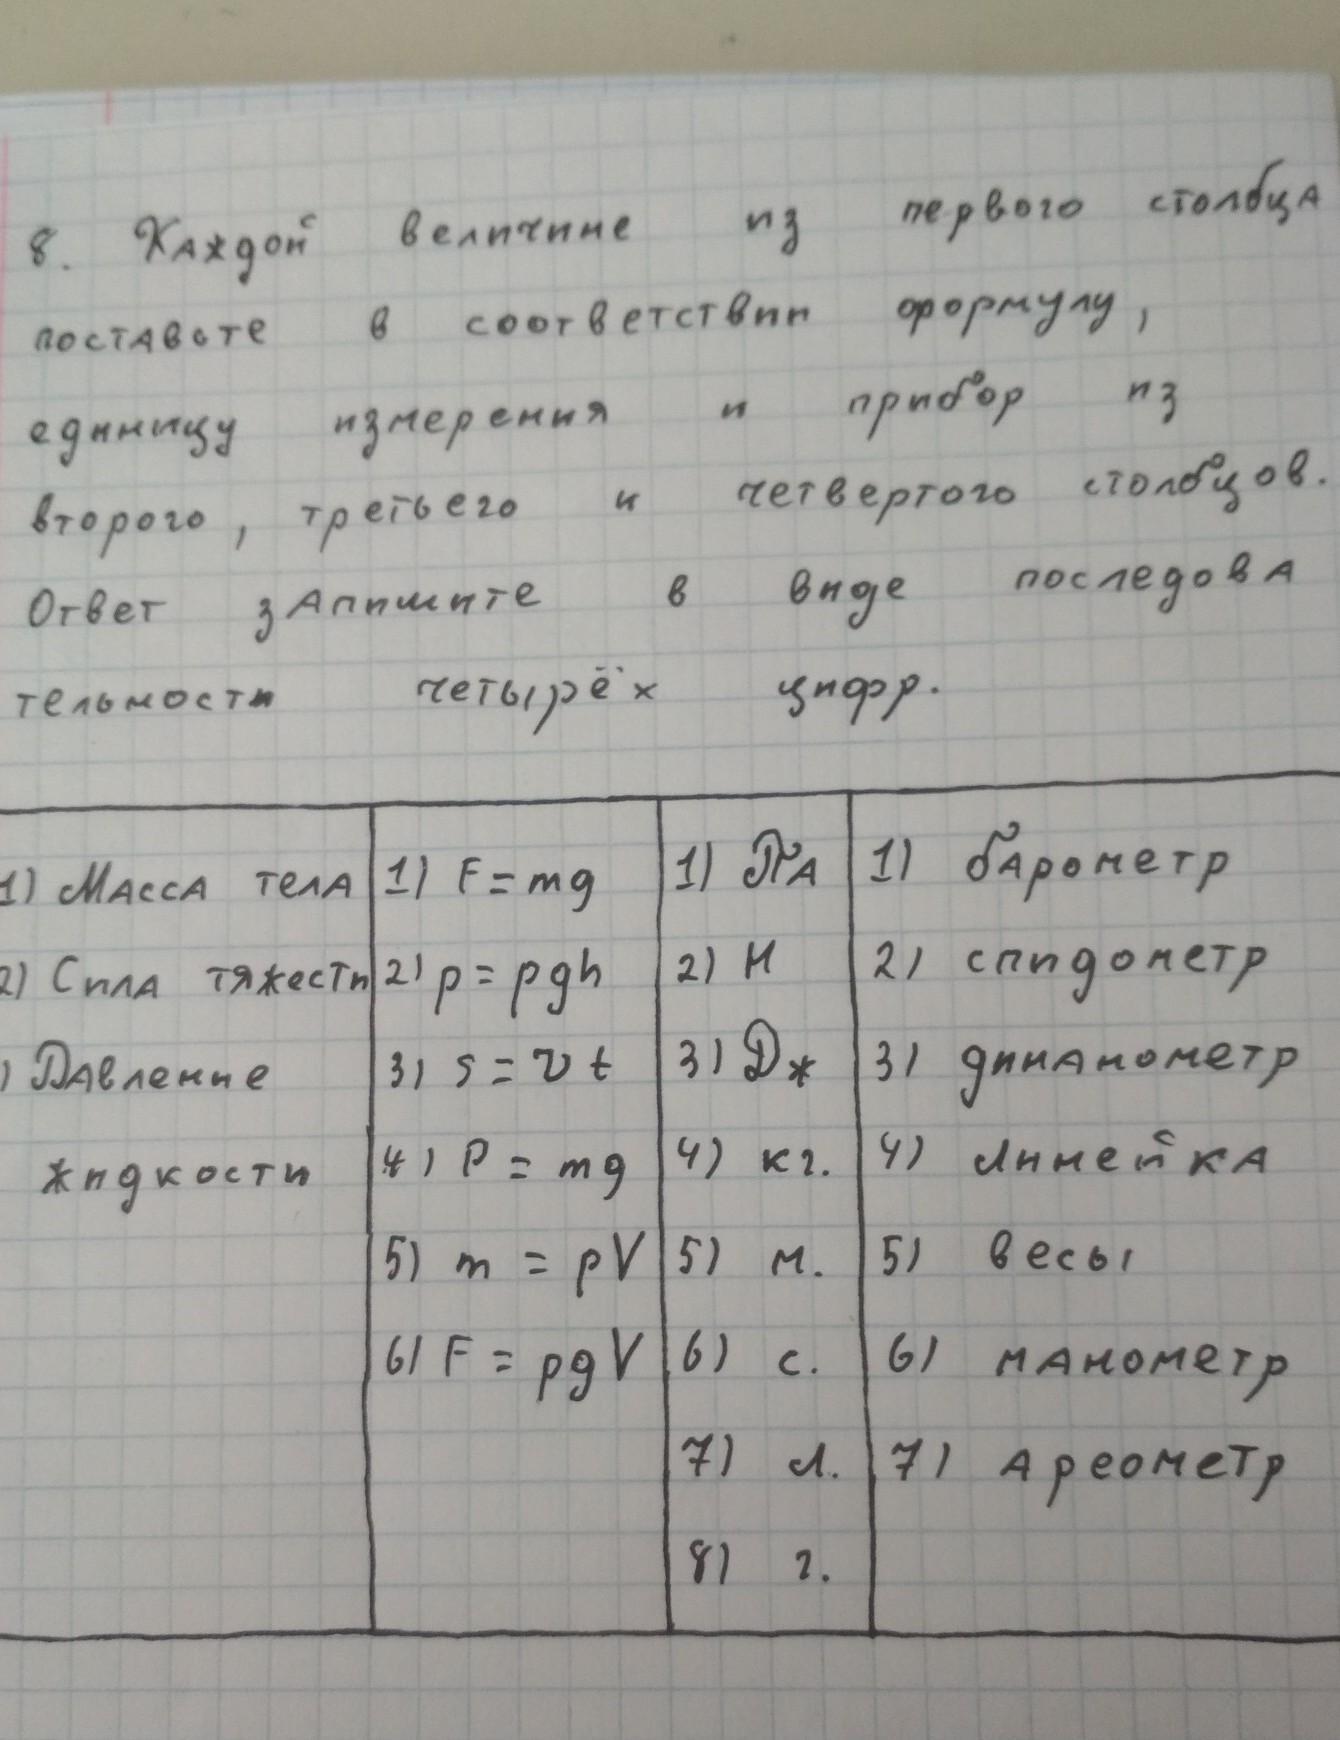 8. Каждой величине из первого столбца
поставьте в соответствии формулу,
единицу измерения и прибор из
второго, третьего и четвертого столбцов.
Ответ запишите в виде последова
тельности четырёх цифр.
1) Масса тела 1) F = mg 1) Па 1) барометр
2) Сила тяжести 2) p = ρgh 2) Н 2) спидометр
) Давление 3) s = v t 3) Дж 3) динамометр
жидкости 4) P = mg 4) кг. 4) линейка
5) m = ρV 5) м. 5) весы
6) F = ρgV 6) с. 6) манометр
7) л. 7) ареометр
8) г.